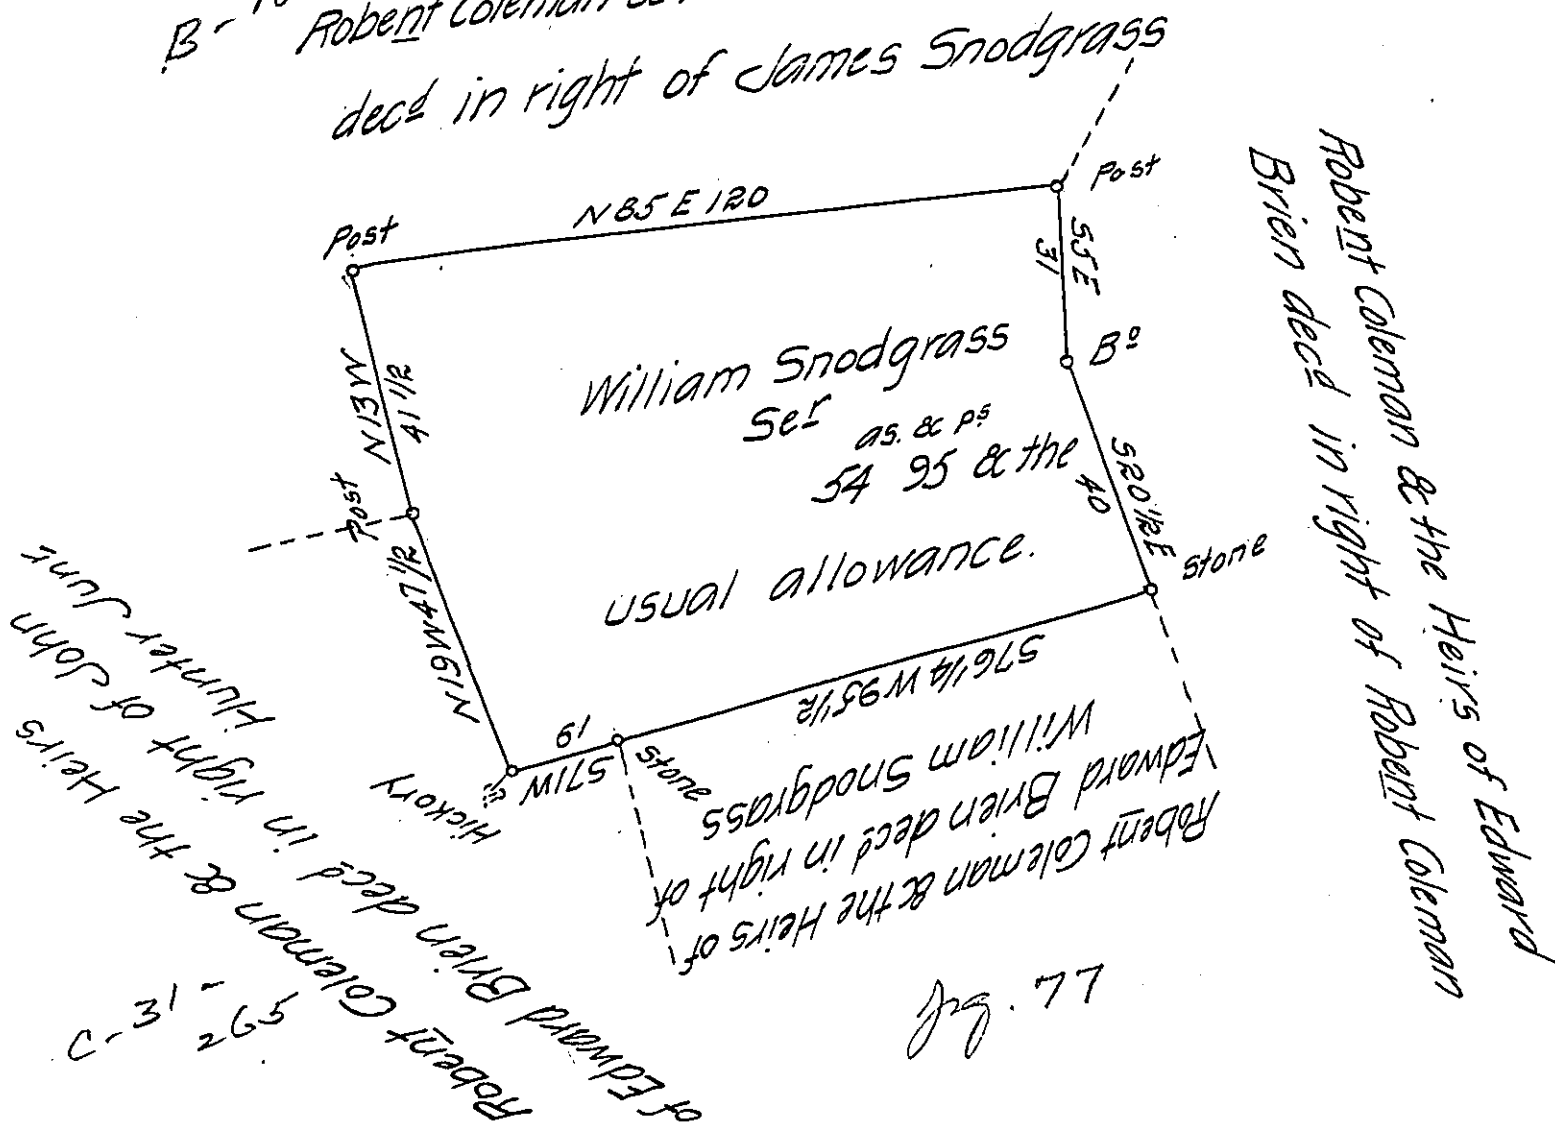 B-
Robent Coleman
decd in right of James Snodgrass
Post
N 85 E 120
Post
S5E
31
Bo
S20 1/2 E
40
Stone
S76 1/4 W 95 1/2
Stone
S71W
19
Hickory
N19W 47 1/2
Post
N13W
41 1/2
William Snodgrass
Ser
as. & ps
54 95 & the
usual allowance.
Robent Coleman & the Heirs of Edward
Brien decd in right of Robent Coleman
Robent Coleman & the Heirs of
Edward Brien decd in right of
William Snodgrass
Robent Coleman & the Heirs
of Edward Brien decd in right of John
Hunter Junr
C-31-
265
77